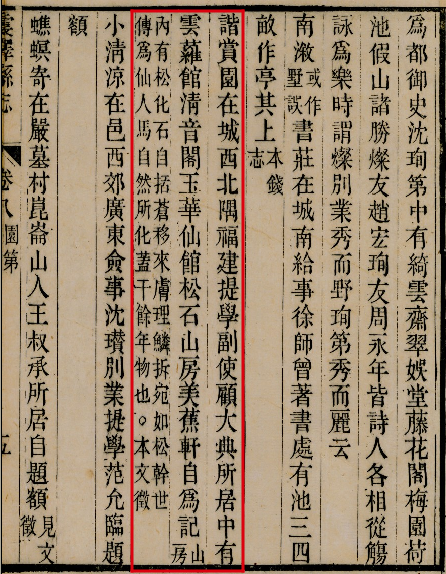 為都御史沈珣第中有綺雲齋翠娛堂藤花閣梅園荷
池假山諸勝燦友趙宏珣友周永年皆詩人各相從觴
詠為樂時謂燦別業秀而野珣第秀而麗云
南漵或作墅誤書莊在城南給事徐師曾著書處有池三四
畝作亭其上本錢志
諧賞園在城西北隅福建提學副使顧大典所居中有
雲蘿館淸音閣玉華仙館松石山房美蕉軒自為記山房
內有松化石自括蒼移來膚理鱗拆宛如松幹世
傳為仙人馬自然所化蓋千餘年物也。本文徵
小淸涼在邑西郊廣東僉事沈瓚別業提學范允臨題
額
蠛蠓寄在嚴墓村崑崙山人王叔承所居自題額見文徵
震澤縣志
卷八
園第
五